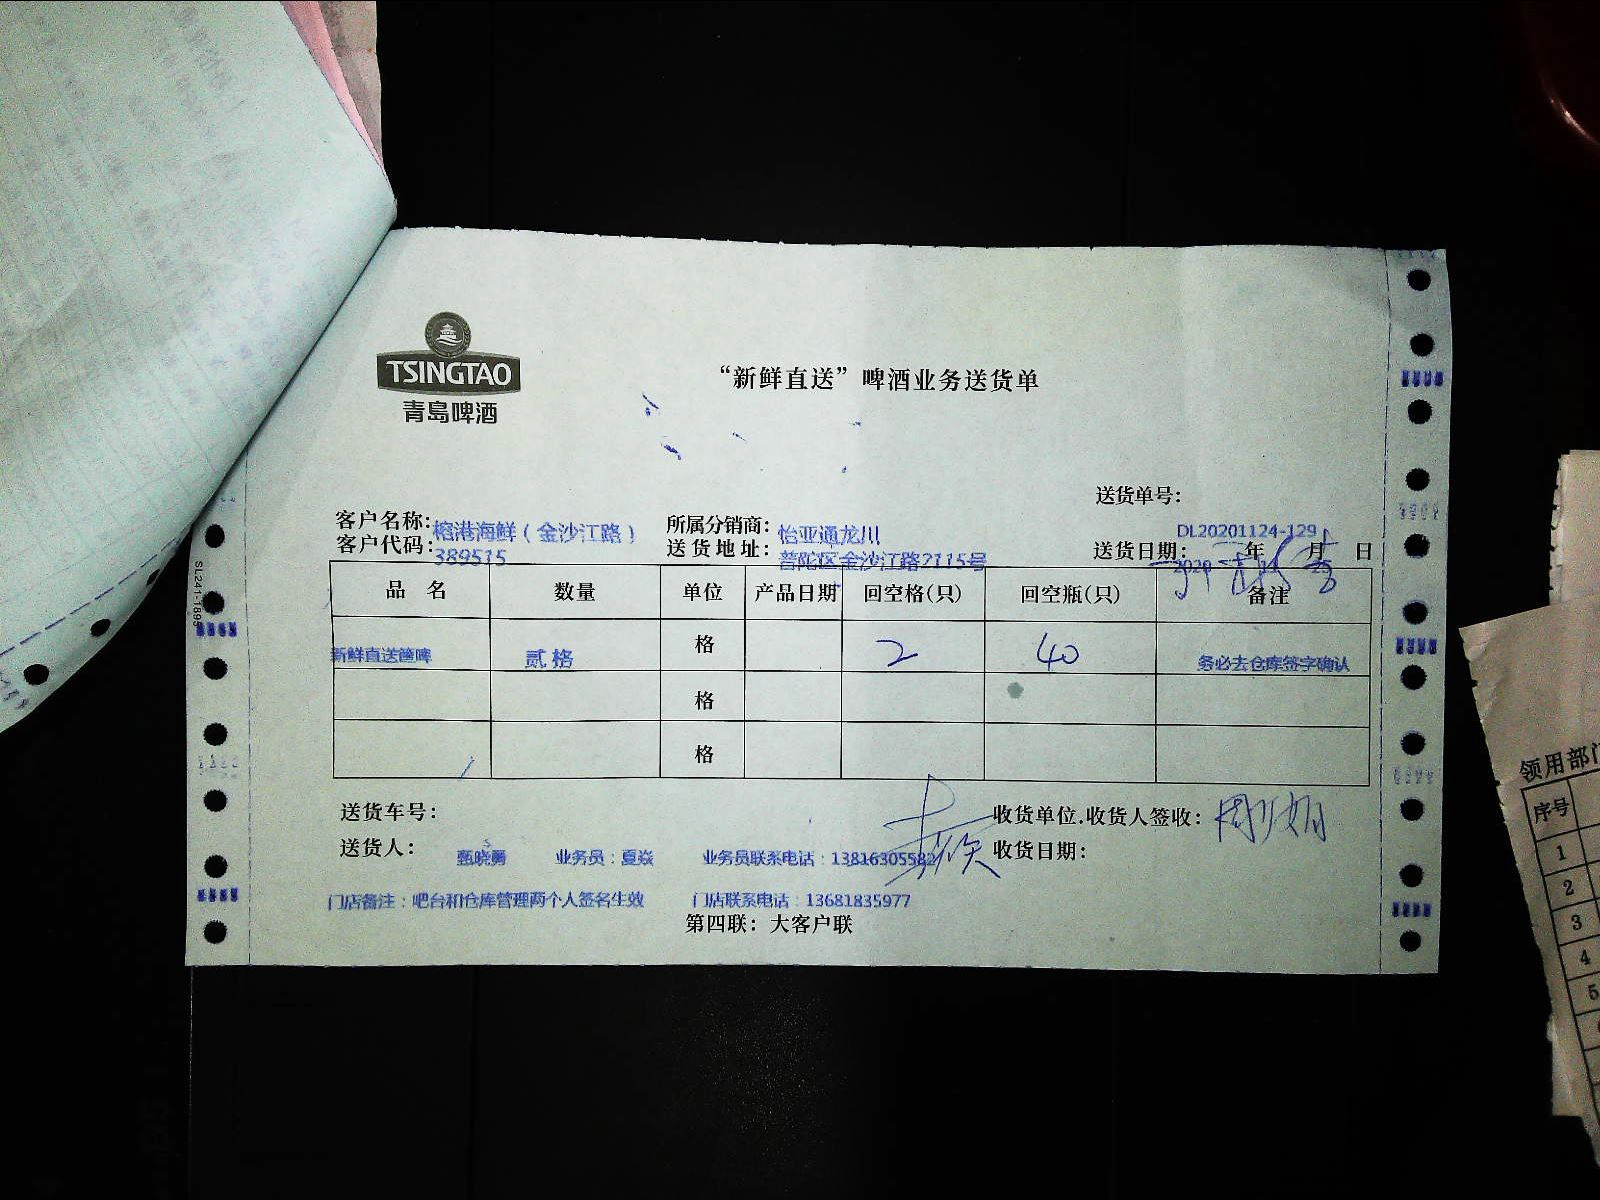 TSINGTAO
青岛啤酒
“新鲜直送”啤酒业务送货单
送货单号:
DL20201124-129
客户名称: 榕港海鲜（金沙江路） 所属分销商: 怡亚通龙川
客户代码: 389515 送货地址: 普陀区金沙江路2115号 送货日期: 2020 年 月 日
品名 数量 单位 产品日期 回空格(只) 回空瓶(只) 备注
新鲜直送箍啤 贰格 格 2 40 务必去仓库签字确认
格
格
送货车号:
收货单位.收货人签收:
送货人: 甄晓勇 业务员：夏焱 业务员联系电话：13816305582 收货日期:
门店备注：吧台和仓库管理两个人签名生效 门店联系电话：13681835977
第四联: 大客户联
SL241-1895
领用部门
序号
1
2
3
4
5